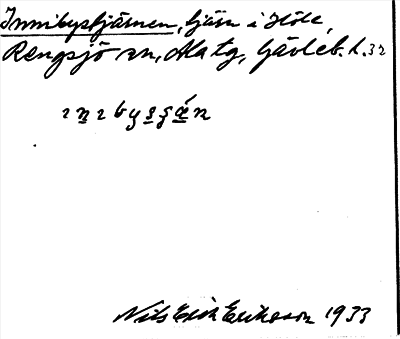 Innibystjärnen, tjärn i Höle,
Rengsjö sn, Ala tg, Gävleb. l. 32
ınıbysʂǽn
Nils Erik Eriksson 1933